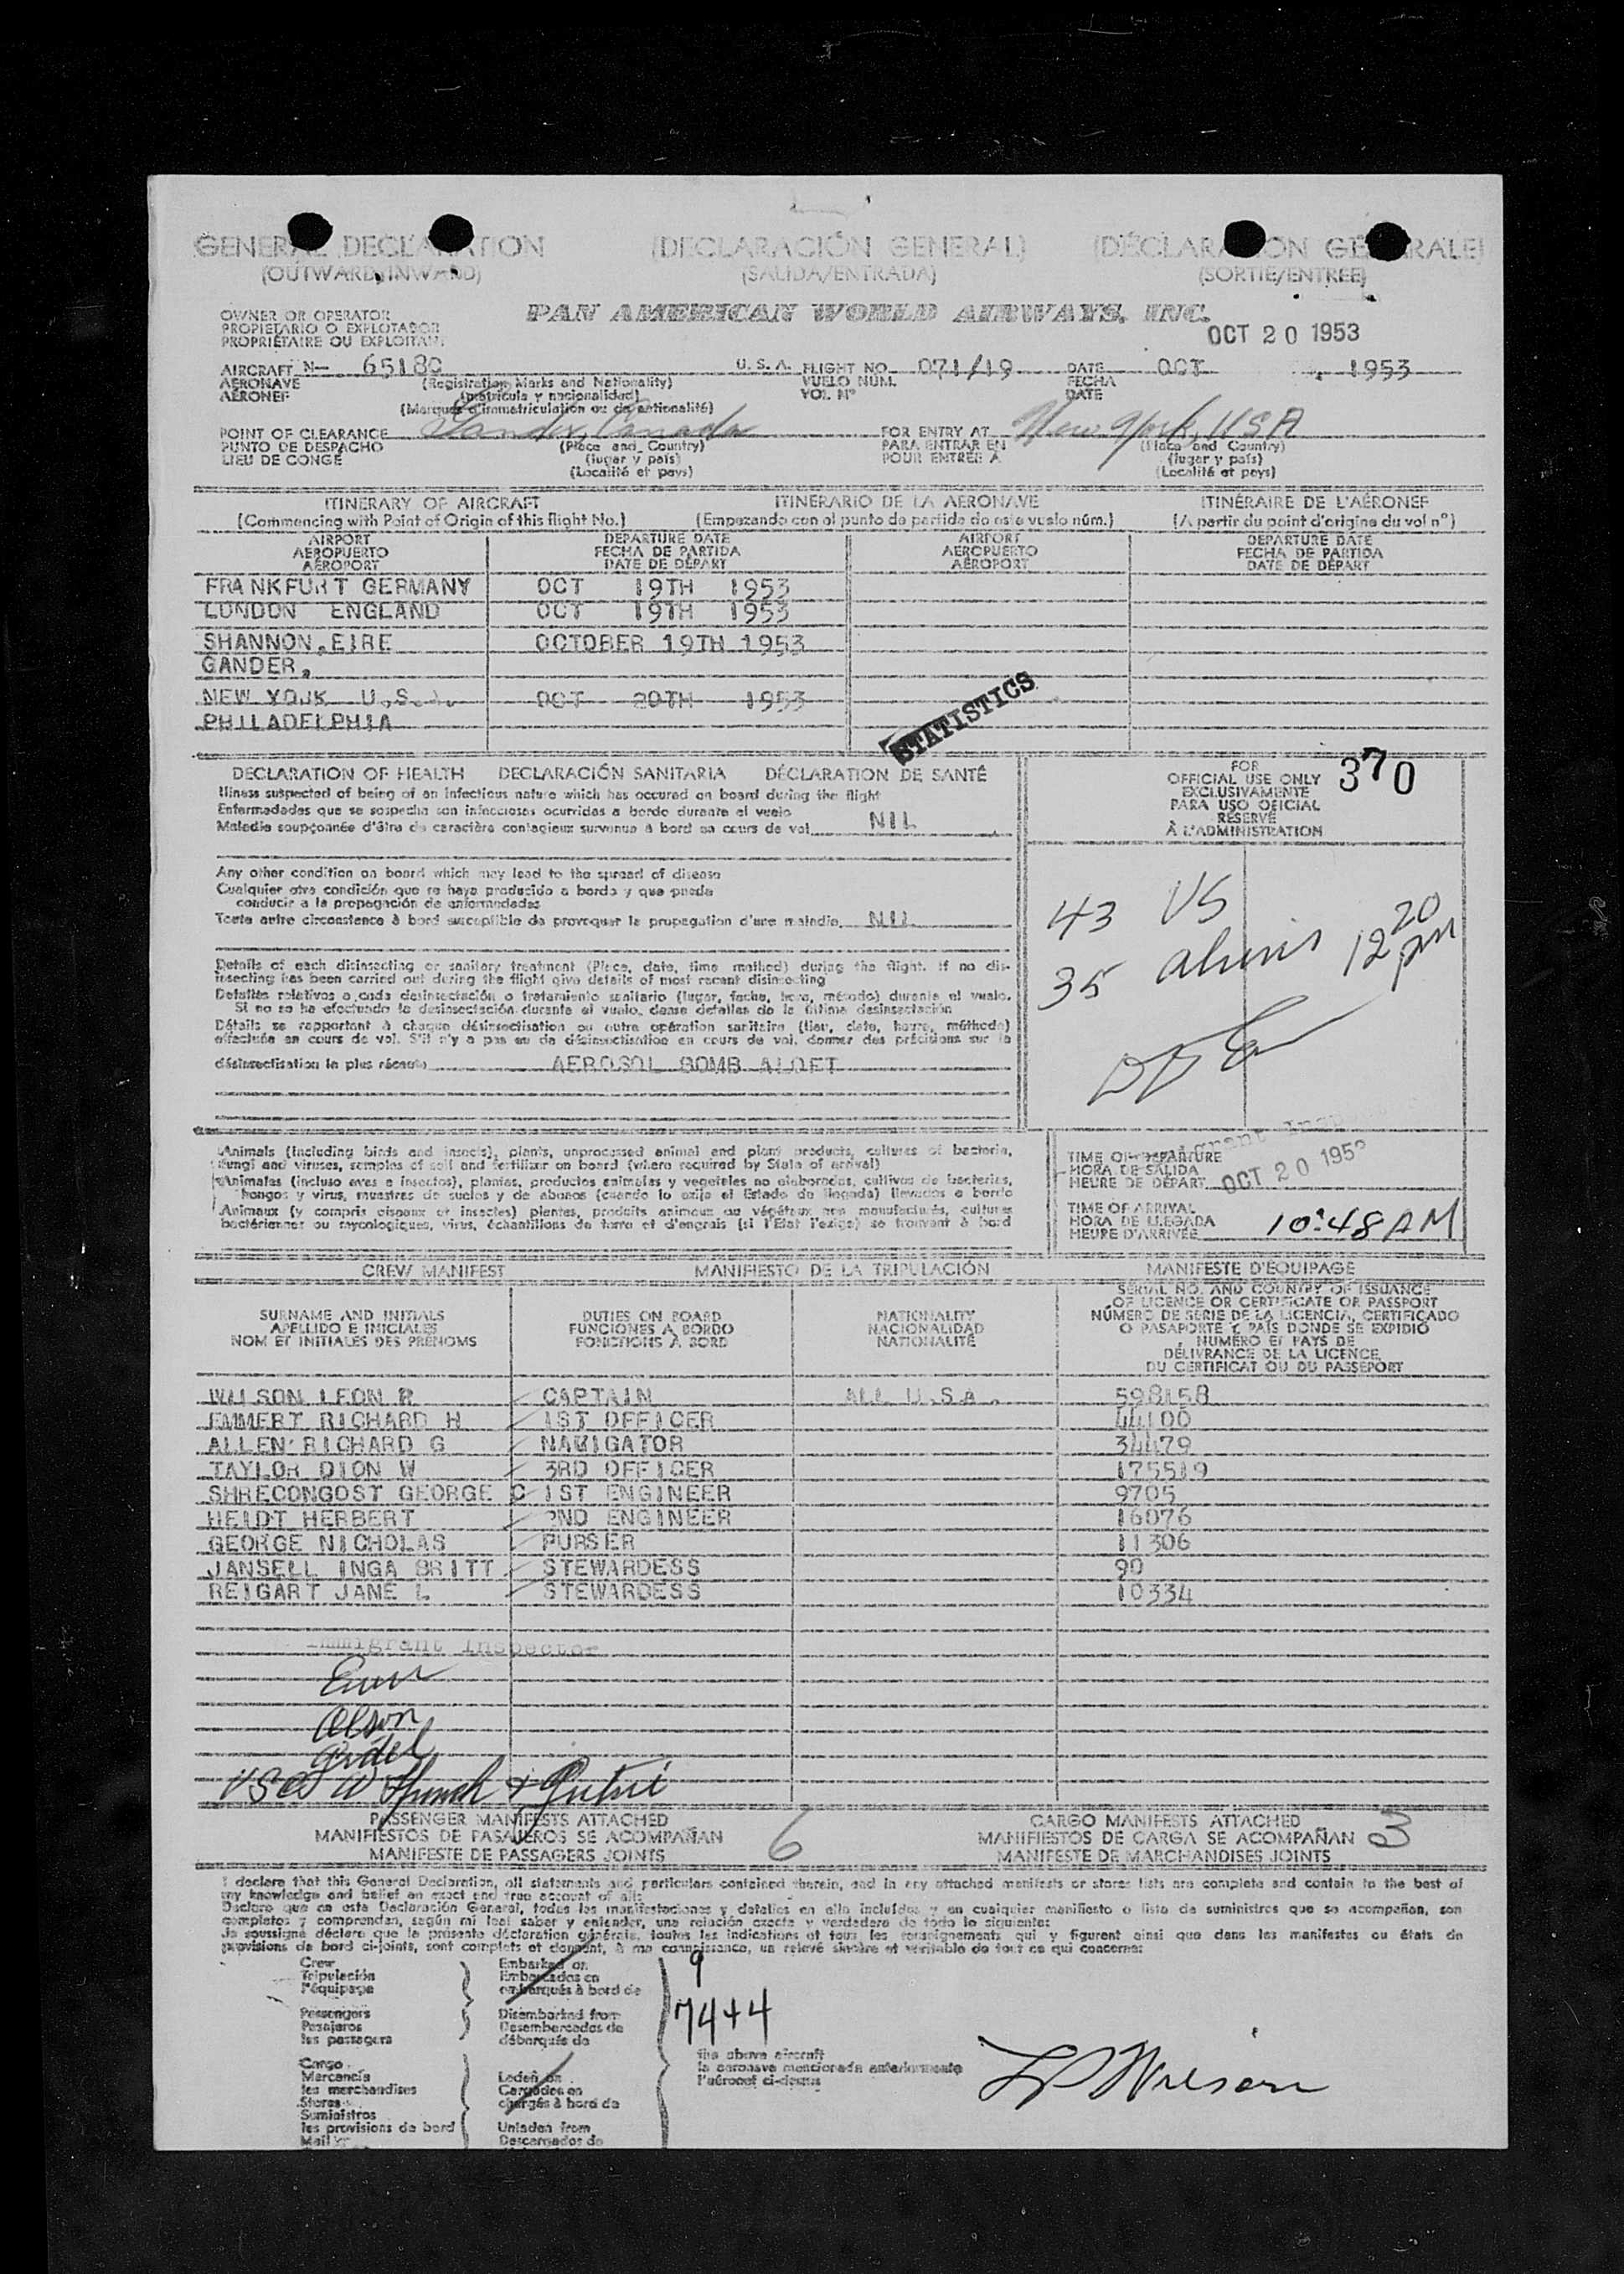 GENERAL DECLARATION (DECLARACIÓN GENERAL) (DÉCLARATION GÉNÉRALE)
(OUTWARD/INWARD) (SALIDA/ENTRADA) (SORTIE/ENTREE)
OWNER OR OPERATOR
PROPIETARIO O EXPLOTADOR
PROPRIÉTAIRE OU EXPLOITANT
PAN AMERICAN WORLD AIRWAYS, INC.
OCT 20 1953
AIRCRAFT N- 6518 U.S.A. FLIGHT NO 071/19 DATE OCT 1953
AERONAVE (Registration Marks and Nationality) VUELO NÚM. FECHA
AÉRONEF (matrícula y nacionalidad) VOL Nº DATE
(Marques d'immatriculation ou de nationalité)
POINT OF CLEARANCE Gander, Canada FOR ENTRY AT New York, USA
PUNTO DE DESPACHO (Place and Country) PARA ENTRAR EN (Place and Country)
LIEU DE CONGÉ (lugar y país) POUR ENTRÉE À (lugar y país)
(Localité et pays) (Localité et pays)
ITINERARY OF AIRCRAFT ITINERARIO DE LA AERONAVE ITINÉRAIRE DE L'AÉRONEF
(Commencing with Point of Origin of this flight No.) (Empezando con el punto de partida de este vuelo núm.) (A partir du point d'origine du vol nº)
AIRPORT DEPARTURE DATE AIRPORT DEPARTURE DATE
AEROPUERTO FECHA DE PARTIDA AEROPUERTO FECHA DE PARTIDA
AÉROPORT DATE DE DÉPART AÉROPORT DATE DE DÉPART
FRANKFURT GERMANY OCT 19TH 1953
LONDON ENGLAND OCT 19TH 1953
SHANNON,EIRE OCTOBER 19TH 1953
GANDER,
NEW YORK U.S.A. OCT 20TH 1953
PHILADELPHIA
STATISTICS
DECLARATION OF HEALTH DECLARACIÓN SANITARIA DÉCLARATION DE SANTÉ
Illness suspected of being of an infectious nature which has occured on board during the flight
Enfermedades que se sospecha son infecciosas ocurridas a bordo durante el vuelo
Maladie soupçonnée d'être de caractère contagieux survenue à bord en cours de vol NIL
Any other condition on board which may lead to the spread of disease
Cualquier otra condición que se haya producido a bordo y que pueda
conducir a la propagación de enfermedades
Toute autre circonstance à bord susceptible de provoquer la propagation d'une maladie NIL
Details of each disinsecting or sanitary treatment (Place, date, time method) during the flight. If no dis-
insecting has been carried out during the flight give details of most recent disinsecting
Detalles relativos a cada desinsectación o tratamiento sanitario (lugar, fecha, hora, método) durante el vuelo.
Si no se ha efectuado la desinsectación durante el vuelo, dense detalles de la última desinsectación
Détails se rapportant à chaque désinsectisation ou autre opération sanitaire (lieu, date, heure, méthode)
effectuée en cours de vol. S'il n'y a pas eu de désinsectisation en cours de vol, donner des précisions sur la
désinsectisation la plus récente AEROSOL BOMB ALOFT
FOR
OFFICIAL USE ONLY
EXCLUSIVAMENTE
PARA USO OFICIAL
RÉSERVÉ
À L'ADMINISTRATION
370
43 US
35 aliens 12 20 pm
Animals (including birds and insects), plants, unprocessed animal and plant products, cultures of bacteria,
fungi and viruses, samples of soil and fertilizer on board (where required by State of arrival)
Animales (incluso aves e insectos), plantas, productos animales y vegetales no elaborados, cultivos de bacterias,
hongos y virus, muestras de suelos y de abonos (cuando lo exija el Estado de llegada) llevados a bordo
Animaux (y compris oiseaux et insectes) plantes, produits animaux ou végétaux non manufacturés, cultures
bactériennes ou mycologiques, virus, échantillons de terre et d'engrais (si l'Etat l'exige) se trouvant à bord
TIME OF DEPARTURE
HORA DE SALIDA
HEURE DE DÉPART OCT 20 1953
TIME OF ARRIVAL
HORA DE LLEGADA
HEURE D'ARRIVÉE 10:48 AM
CREW MANIFEST MANIFIESTO DE LA TRIPULACIÓN MANIFESTE D'EQUIPAGE
SURNAME AND INITIALS DUTIES ON BOARD NATIONALITY
APELLIDO E INICIALES FUNCIONES A BORDO NACIONALIDAD
NOM ET INITIALES DES PRÉNOMS FONCTIONS À BORD NATIONALITÉ
SERIAL NO. AND COUNTRY OF ISSUANCE
OF LICENCE OR CERTIFICATE OR PASSPORT
NÚMERO DE SERIE DE LA LICENCIA, CERTIFICADO
O PASAPORTE Y PAÍS DONDE SE EXPIDIÓ
NUMÉRO ET PAYS DE
DÉLIVRANCE DE LA LICENCE
DU CERTIFICAT OU DU PASSEPORT
WILSON LEON R CAPTAIN ALL U.S.A. 598158
EMMERT RICHARD H 1ST OFFICER 44100
ALLEN RICHARD G NAVIGATOR 34479
TAYLOR DION W 3RD OFFICER 175519
SHRECONGOST GEORGE C 1ST ENGINEER 9705
HEIDT HERBERT 2ND ENGINEER 16076
GEORGE NICHOLAS PURSER 11306
JANSELL INGA BRITT STEWARDESS 90
REIGART JANE L STEWARDESS 10334
Immigrant Inspector
Olson
PASSENGER MANIFESTS ATTACHED CARGO MANIFESTS ATTACHED
MANIFIESTOS DE PASAJEROS SE ACOMPAÑAN 6 MANIFIESTOS DE CARGA SE ACOMPAÑAN 3
MANIFESTE DE PASSAGERS JOINTS MANIFESTE DE MARCHANDISES JOINTS
I declare that this General Declaration, all statements and particulars contained therein, and in any attached manifests or stores lists are complete and contain to the best of
my knowledge and belief an exact and true account of all:
Declaro que en esta Declaración General, todas las manifestaciones y detalles en ella incluidos y en cualquier manifiesto o lista de suministros que se acompañan, son
completos y comprenden, según mi leal saber y entender, una relación exacta y verdadera de todo lo siguiente:
Je soussigné déclare que la présente déclaration générale, toutes les indications et tous les renseignements qui y figurent ainsi que dans les manifestes ou états de
provisions de bord ci-joints, sont complets et donnent, à ma connaissance, un relevé sincère et véritable de tout ce qui concerne:
Crew Embarked on 9
Tripulación Embarcados en
l'équipage embarqués à bord de
Passengers Disembarked from 74+4
Pasajeros Desembarcados de
les passagers débarqués de
the above aircraft
la aeronave mencionada anteriormente
l'aéronef ci-dessus
Cargo
Mercancía Laden on
les marchandises Cargados en
Stores chargés à bord de
Suministros
les provisions de bord Unladen from
Mail Descargados de
LR Wilson